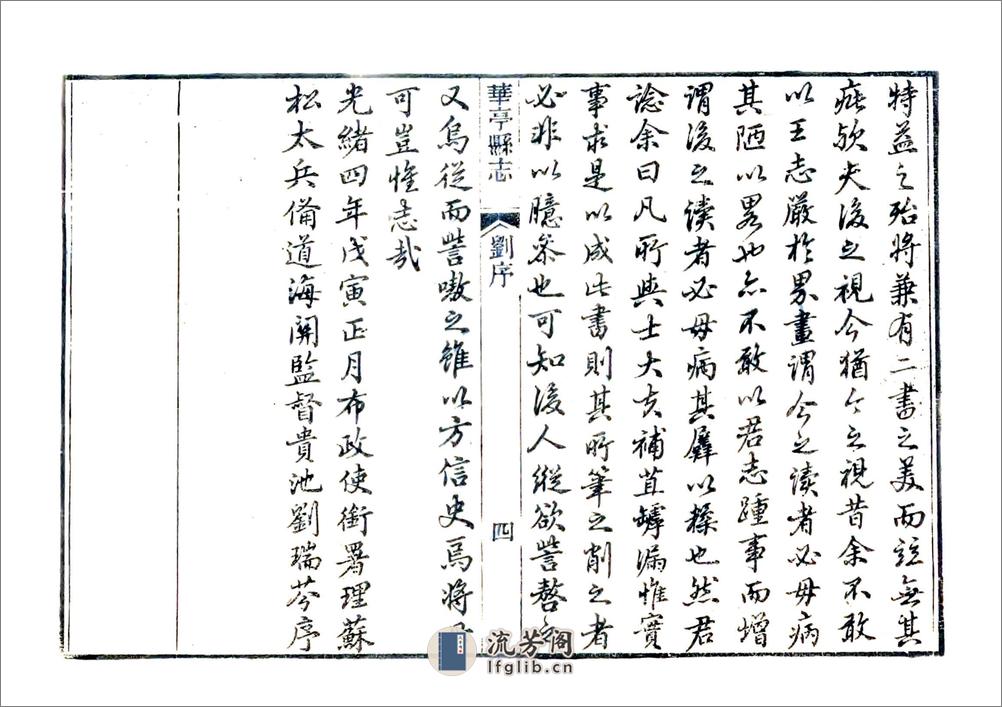 特益之殆將兼有二書之美而竝無其
疵歟夫後之視今猶今之視昔余不敢
以王志嚴於界畫謂今之讀者必毋病
其陋以畧也亦不敢以君志踵事而增
謂後之讀者必毋病其孱以糅也然君
諗余曰凡所與士大夫補苴罅漏惟實
事求是以成此書則其所筆之削之者
必非以臆參也可知後人縱欲訾謷之
華亭縣志 劉序 四
又烏從而訾嗷之雖以方信史焉將
可豈惟志哉
光緒四年戊寅正月布政使銜署理蘇
松太兵備道海關監督貴池劉瑞芬序
流芳阁
lfglib.cn